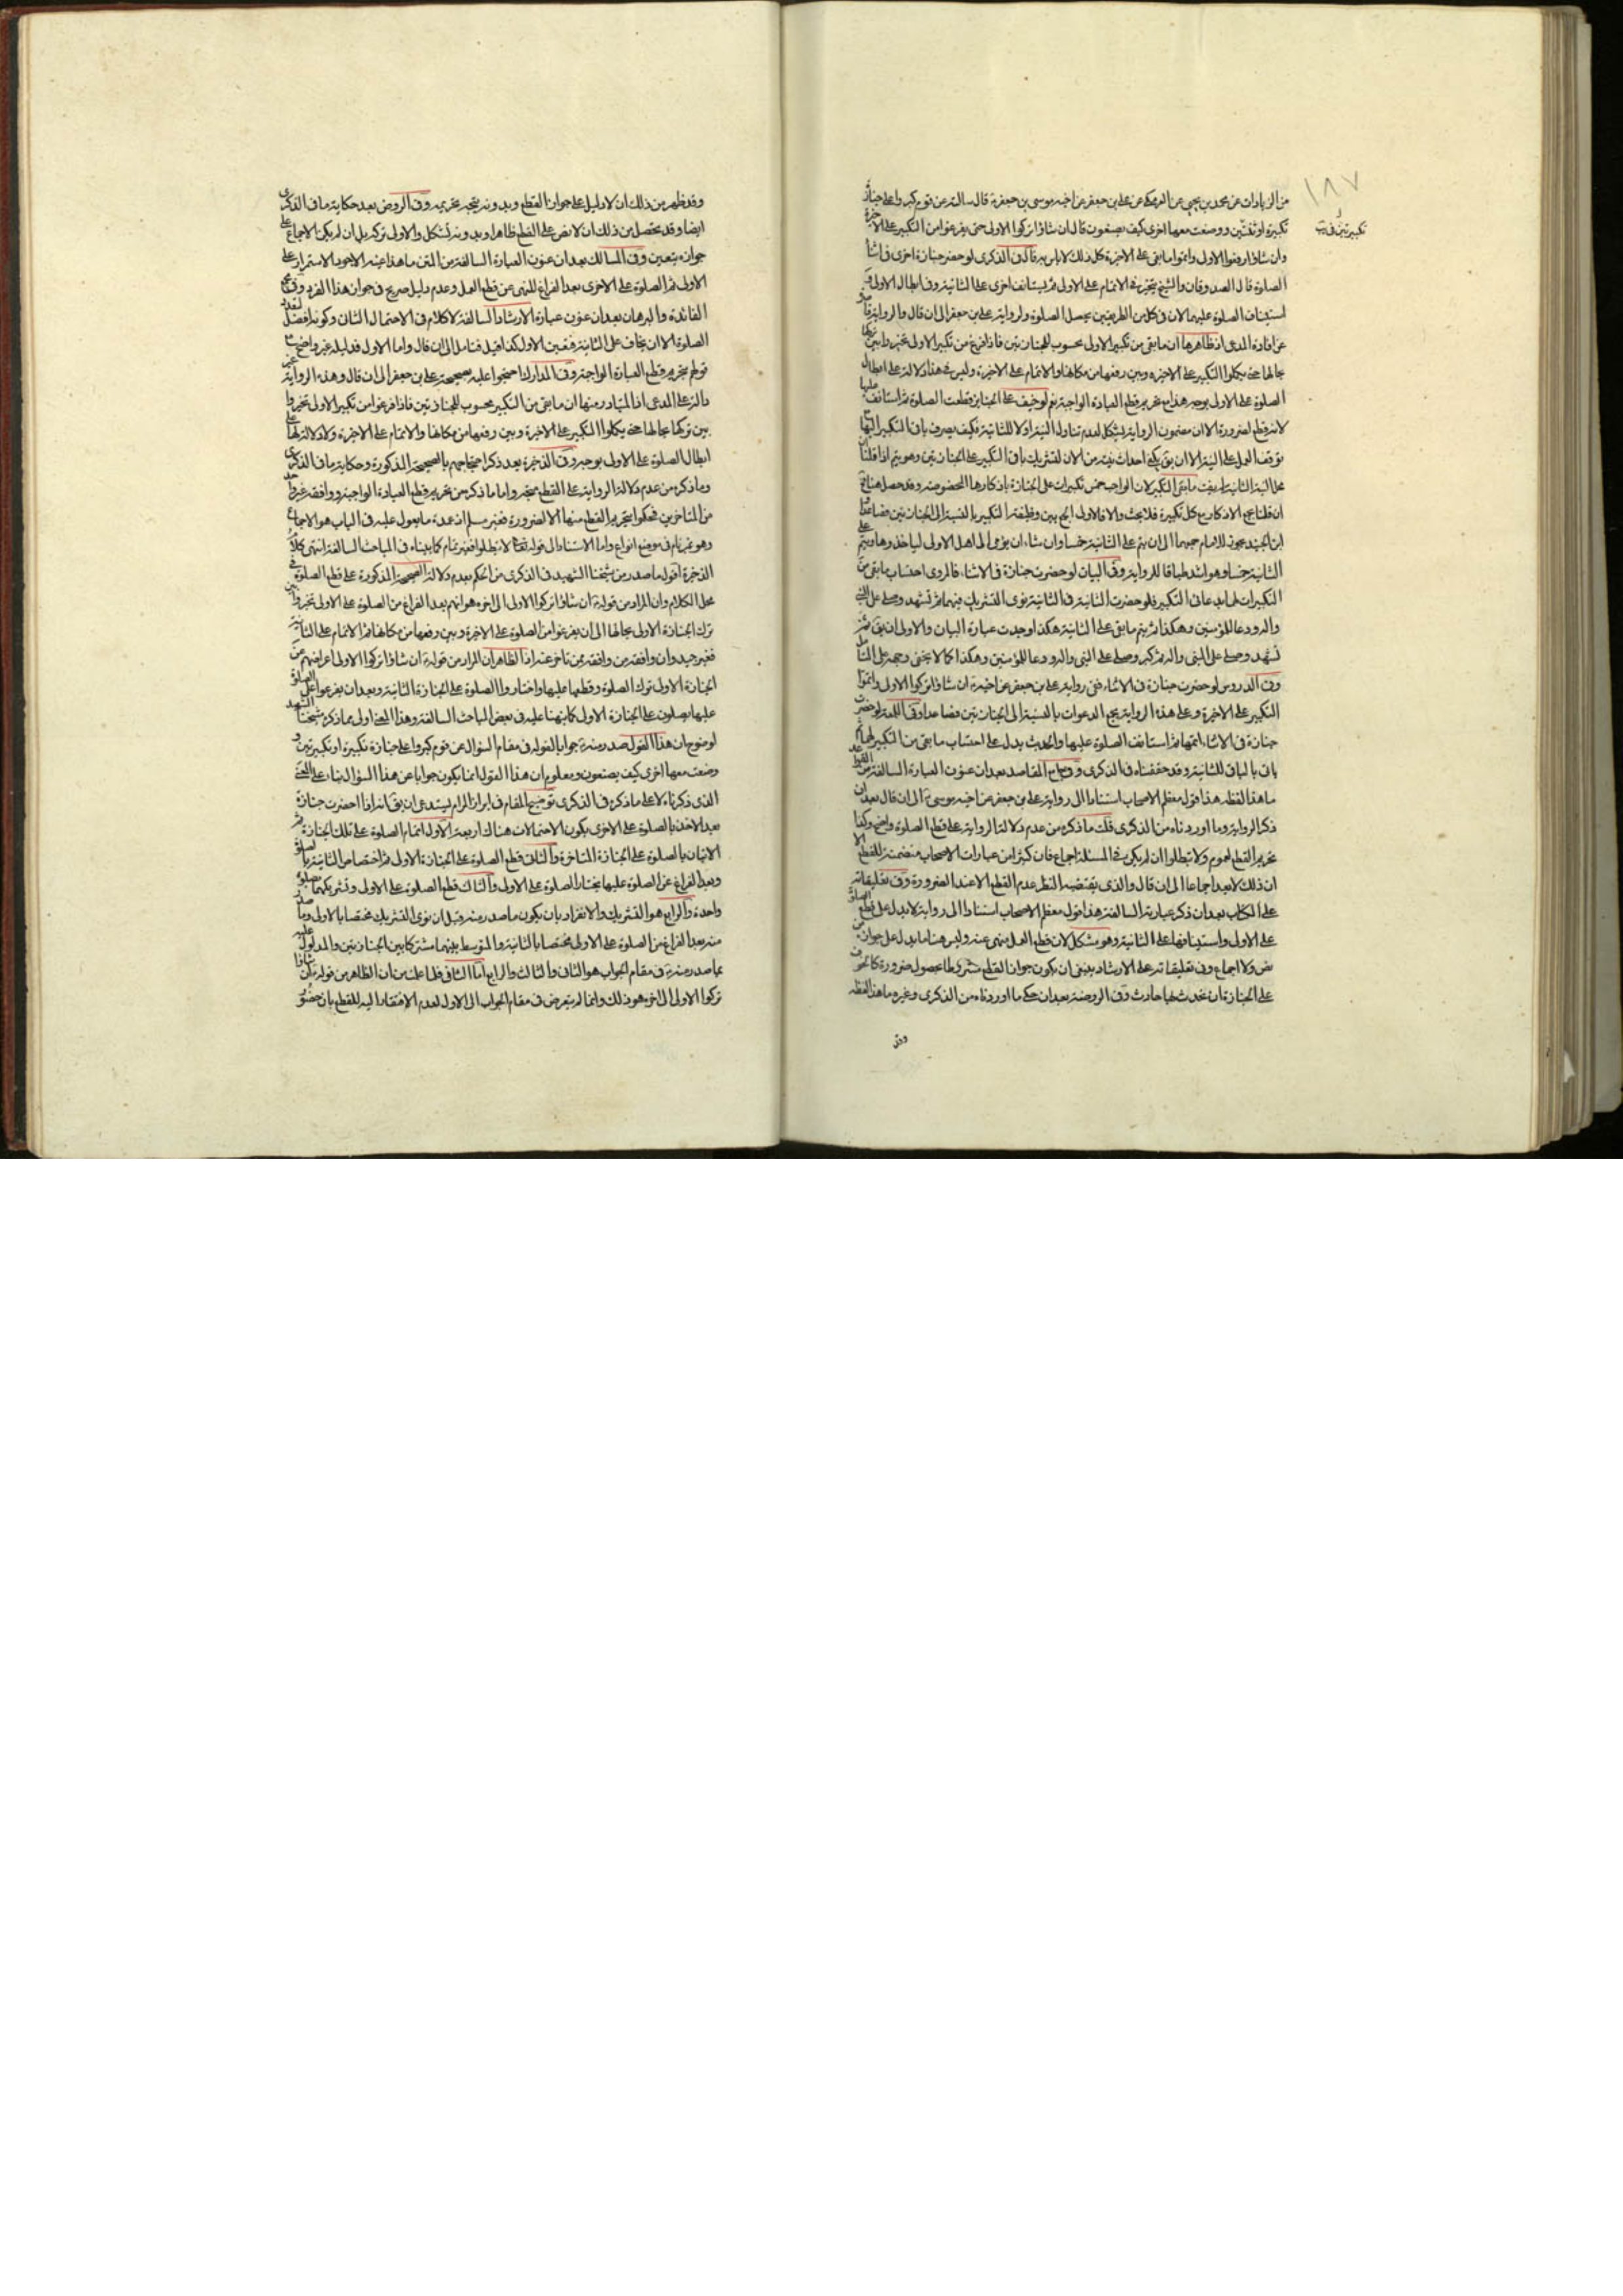 ١٨٧
من الزيادات عن محمد بن يحيى عن العمركي عن علي بن جعفر عن اخيه موسى بن جعفر ع قال سالته عن قوم كبروا على جنازة
تكبيرة او ثنتين ووضعت معها اخرى كيف يصنعون قال ان شاؤا تركوا الاولى حتى يفرغوا من التكبير على الاخيرة
وان شاؤا رفعوا الاولى واتموا ما بقى على الاخيرة كل ذلك لا باس به قال في الذكرى لو حضر جنازة اخرى في اثناء
الصلوة قال الصدوقان والشيخ يتخير في الاتمام على الاولى ثم يستانف اخرى على الثانية وفي ابطال الاولى و
استيناف الصلوة عليهما لان في كل من الطريقين يحصل الصلوة ولرواية علي بن جعفر الى ان قال والرواية قاصرة
عن افادة المدعى اذ ظاهرها ان ما بقى من تكبير الاولى محسوب للجنازتين فاذا فرغ من تكبير الاولى تخيروا بين تركها
بحالها حتى يكملوا التكبير على الاخيرة وبين رفعها من مكانها والاتمام على الاخيرة وليس في هذا دلالة على ابطال
الصلوة على الاولى بوجه هذا مع تحريم قطع العبادة الواجبة نعم لو خيف على الجنايز قطعت الصلوة ثم استانف عليها
لانه قطع لضرورة الا ان مضمون الرواية يشكل لعدم تناول النية اولا للثانية فكيف يصرف باقي التكبير اليها مع
توقف العمل على النية الا ان يق يكفي احداث نية من الان لتشريك باقي التكبير على الجنازتين وهو يتم اذا قلنا ان
محل النية الثانية لم يفت ما بقى التكبير لان الواجب خمس تكبيرات على الجنازة باذكارها المخصوصة وقد حصل هنا ثم
ان قلنا بجمع الاذكار مع كل تكبيرة فلا بحث والا فالاولى الجمع بين وظيفة التكبير بالنسبة الى الجنازتين فصاعدا قال
ابن الجنيد يجوز للامام جمعهما الى ان يتم على الثانية خمسا وان شاء ان يومى الى اهل الاولى لياخذوها ويتم على
الثانية خمسا وهو اشد طباقا للرواية وفي البيان لو حضرت جنازة في الاثناء فالمروي احتساب ما بقى من
التكبيرات لهما ثم ياتي التكبير فلو حضرت الثانية في الثانية نوى التشريك فيهما ثم تشهد وصلى على النبي
واله ودعا للمؤمنين وهكذا ثم يتم ما بقى على الثانية هكذا وجدت عبارة البيان والاولى ان يق
تشهد وصلى على النبي واله ثم كبر وصلى على النبي واله ودعا للمؤمنين وهكذا كما لا يخفى وجهه على المتامل
وفي الدروس لو حضرت جنازة في الاثناء ففي رواية علي بن جعفر عن اخيه ع ان شاؤا تركوا الاولى واتموا
التكبير على الاخيرة وعلى هذه الرواية يجمع الدعوات بالنسبة الى الجنازتين فصاعدا وفي اللمعة لو حضرت
جنازة في الاثناء اتمها ثم استانف الصلوة عليها والحديث يدل على احتساب ما بقى من التكبير لهما ثم
ياتي بالباقي للثانية وقد حققناه في الذكرى وفي جامع المقاصد بعد ان عنون العبارة السالفة من القواعد
ما هذا لفظه هذا قول معظم الاصحاب استنادا الى رواية علي بن جعفر عن اخيه موسى ع الى ان قال بعد ان
ذكر الرواية وما اوردناه من الذكرى قلت ما ذكره من عدم دلالة الرواية على قطع الصلوة واضح وكذا
تحريم القطع لعموم ولا تبطلوا ان لم يكن في المسئلة اجماع فان كثيرا من عبارات الاصحاب متضمنة للقطع الا
ان ذلك لا يعد اجماعا الى ان قال والذي يقتضيه النظر عدم القطع الا عند الضرورة وفي تعليقاته
على الكتاب بعد ان ذكر عبارته السالفة هذا قول معظم الاصحاب استنادا الى رواية لا تدل على قطع الصلوة
على الاولى واستينافها على الثانية وهو مشكل لان قطع العمل منهى عنه وليس هنا ما يدل على جوازه من
نص ولا اجماع وفي تعليقاته على الارشاد ينبغي ان يكون جواز القطع مشروطا بحصول ضرورة كالخوف
على الجنازة ان تحدث بها حادث وفي الروضة بعد ان حكى ما اوردناه من الذكرى وغيره ما هذا لفظه
وقد
وقد ظهر من ذلك ان لا دليل على جواز القطع وبدونه يتجه تحريمه وفي الروض بعد حكاية ما في الذكرى
ايضا وقد تحصل من ذلك ان لا نص على القطع ظاهرا وبدونه يشكل والاولى تركه بل ان لم يكن الاجماع على
جوازه يتعين وفي المسالك بعد ان عنون العبارة السالفة من المتن ما هذا عينه الاجود الاستمرار على
الاولى ثم الصلوة على الاخرى بعد الفراغ للنهى عن قطع العمل وعدم دليل صريح في جواز هذا الفرد وفي مجمع
الفائدة والبرهان بعد ان عنون عبارة الارشاد السالفة لا كلام في الاحتمال الثاني وكونه افضل لتعدد
الصلوة الا ان يخاف على الثانية فتعين الاول كذا قيل فتامل الى ان قال واما الاول فدليله غير واضح مع
قولهم بتحريم قطع العبادة الواجبة وفي المدارك احتجوا عليه بصحيحة علي بن جعفر الى ان قال وهذه الرواية غير
دالة على المدعى اذ المتبادر منها ان ما بقى من التكبير محسوب للجنازتين فاذا فرغوا من تكبير الاولى تخيروا
بين تركها بحالها حتى يكملوا التكبير على الاخيرة وبين رفعها من مكانها والاتمام على الاخيرة ولا دلالة لها على
ابطال الصلوة على الاولى بوجه وفي الذخيرة بعد ذكر احتجاجهم بالصحيحة المذكورة وحكاية ما في الذكرى
وما ذكره من عدم دلالة الرواية على القطع متجه واما ما ذكره من تحريم قطع العبادة الواجبة ووافقه غير واحد
من المتاخرين فحكموا بتحريم القطع منها الا لضرورة فغير مسلم اذ عمدة ما يعول عليه في الباب هو الاجماع
وهو غير تام في موضع النزاع واما الاستناد الى قوله تعالى لا تبطلوا فغير تمام كما بيناه في المباحث السالفة انتهى كلامه
الذخيرة اقول ما صدر من شيخنا الشهيد في الذكرى من الحكم بعدم دلالة الصحيحة المذكورة على قطع الصلوة في
محل الكلام وان المراد من قوله ع ان شاؤا تركوا الاولى الى اخره هو انهم بعد الفراغ من الصلوة على الاولى تخيروا بين
ترك الجنازة الاولى بحالها الى ان يفرغوا من الصلوة على الاخيرة وبين رفعها من مكانها ثم الاتمام على الثانية
فغير جيد وان وافقه من وافقه ممن تاخر عنه اذ الظاهر ان المراد من قوله ع ان شاؤا تركوا الاولى اعراضهم عن
الجنازة الاولى بترك الصلوة وقطعها عليها واختاروا الصلوة على الجنازة الثانية وبعد ان يفرغوا عن الصلوة
عليها يصلون على الجنازة الاولى كما نبهنا عليه في بعض المباحث السالفة وهذا المعنى اولى مما ذكره شيخنا الشهيد
لوضوح ان هذا القول صدر منه ع جوابا لقوله في مقام السؤال عن قوم كبروا على جنازة تكبيرة او تكبيرتين و
وضعت معها اخرى كيف يصنعون ومعلوم ان هذا القول انما يكون جوابا عن هذا السؤال بناء على المعنى
الذي ذكرناه لا على ما ذكره في الذكرى توضيح المقام في ابراز المرام يستدعى ان يق انه اذا احضرت جنازة
بعد الاخذ بالصلوة على الاخرى يكون الاحتمالات هناك اربعة الاول اتمام الصلوة على تلك الجنازة ثم
الاتيان بالصلوة على الجنازة المتاخرة والثاني قطع الصلوة على الجنازة الاولى ثم اختصاص الثانية بالصلوة
وبعد الفراغ عن الصلوة عليها يختار الصلوة على الاولى والثالث قطع الصلوة على الاولى وتشريكهما بصلوة
واحدة والرابع هو التشريك والانفراد بان يكون ما صدر منه قبل ان نوى التشريك مختصا بالاولى وما صدر
منه بعد الفراغ عن الصلوة على الاولى مختصا بالثانية والمتوسط بينهما مشتركا بين الجنازتين والمدلول عليه
بما صدر منه ع في مقام الجواب هو الثاني والثالث والرابع اما الثاني فلما علمت من ان الظاهر من قوله ع ان شاؤا
تركوا الاولى الى اخره هو ذلك وانما لم يتعرض في مقام الجواب الى الاول لعدم الافتقار اليه للقطع بان حضور